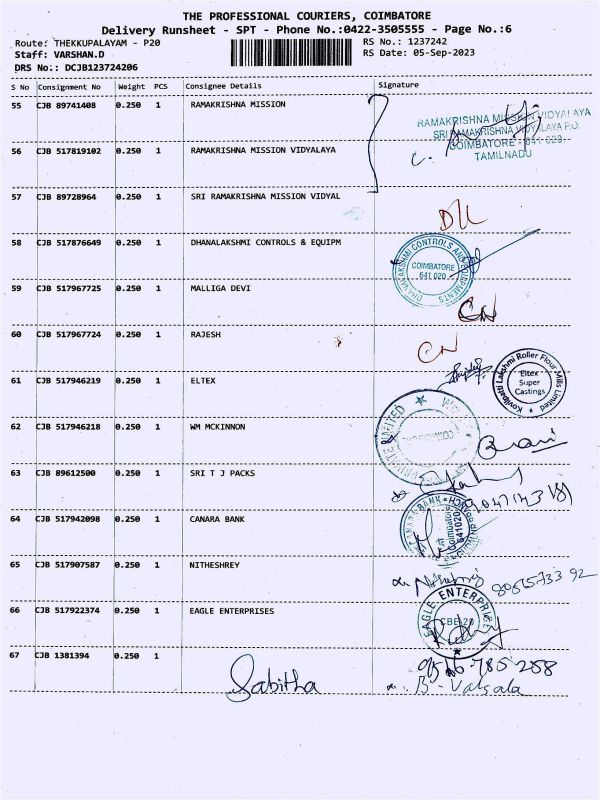 THE PROFESSIONAL COURIERS, COIMBATORE
Delivery Runsheet - SPT - Phone No.:0422-3505555 - Page No.:6
Route: THEKKUPALAYAM - P20 RS No.: 1237242
Staff: VARSHAN.D RS Date: 05-Sep-2023
DRS No.: DCJB123724206
S No Consignment No Weight PCS Consignee Details Signature
55 CJB 89741408 0.250 1 RAMAKRISHNA MISSION
RAMAKRISHNA MISSION VIDYALAYA
SRI RAMAKRISHNA VIDYALAYA P.O.
COIMBATORE - 641 020
TAMILNADU
56 CJB 517819102 0.250 1 RAMAKRISHNA MISSION VIDYALAYA
57 CJB 89728964 0.250 1 SRI RAMAKRISHNA MISSION VIDYAL
58 CJB 517876649 0.250 1 DHANALAKSHMI CONTROLS & EQUIPM
DHANALAKSHMI CONTROLS AND EQUIPMENTS
COIMBATORE
641 020
59 CJB 517967725 0.250 1 MALLIGA DEVI
CN
60 CJB 517967724 0.250 1 RAJESH
CN
61 CJB 517946219 0.250 1 ELTEX
Kovilpatti Lakshmi Roller Flour Mills Limited
Eltex
Super
Castings
62 CJB 517946218 0.250 1 WM MCKINNON
PRIVATE LIMITED
63 CJB 89612500 0.250 1 SRI T J PACKS
64 CJB 517942098 0.250 1 CANARA BANK
CANARA BANK
Coimbatore
641020
65 CJB 517907587 0.250 1 NITHESHREY
66 CJB 517922374 0.250 1 EAGLE ENTERPRISES
EAGLE ENTERPRISES
CBE-20
67 CJB 1381394 0.250 1
9566785258
Sabitha B - Valsala